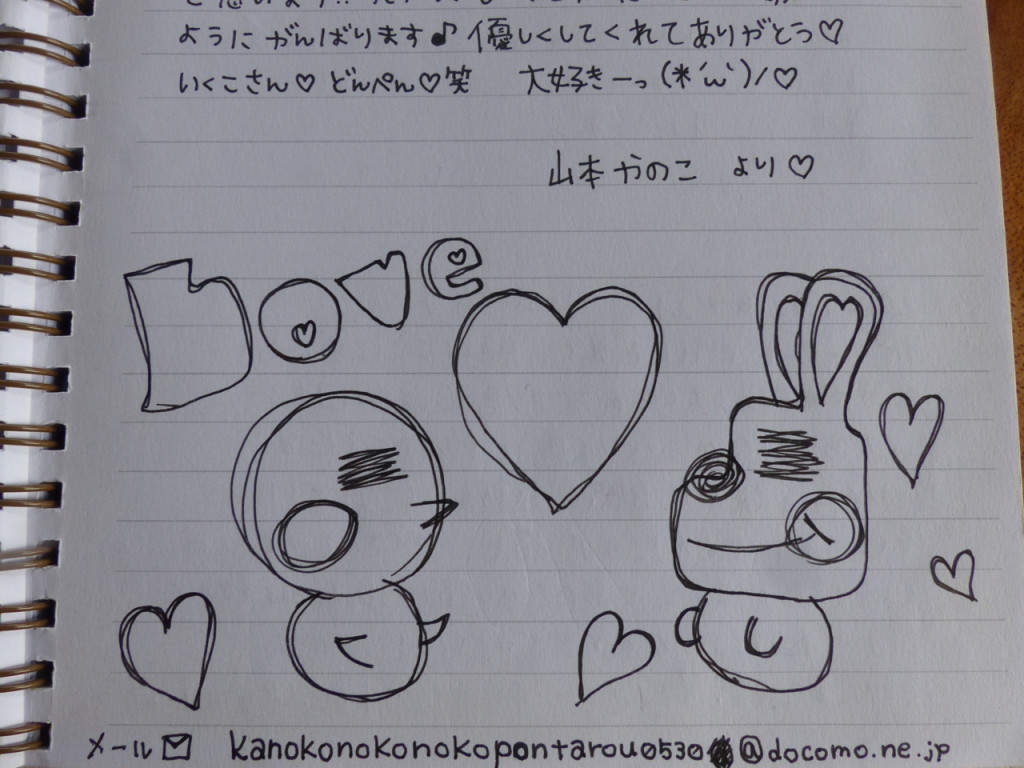 ようにがんばります♪ 優しくしてくれてありがとう♡
いくこさん♡ どんぺん♡笑 大好きーっ(*´ω`)ノ♡
山本かのこ より♡
Love
メール✉ kanokonokonokopontarou0530@docomo.ne.jp